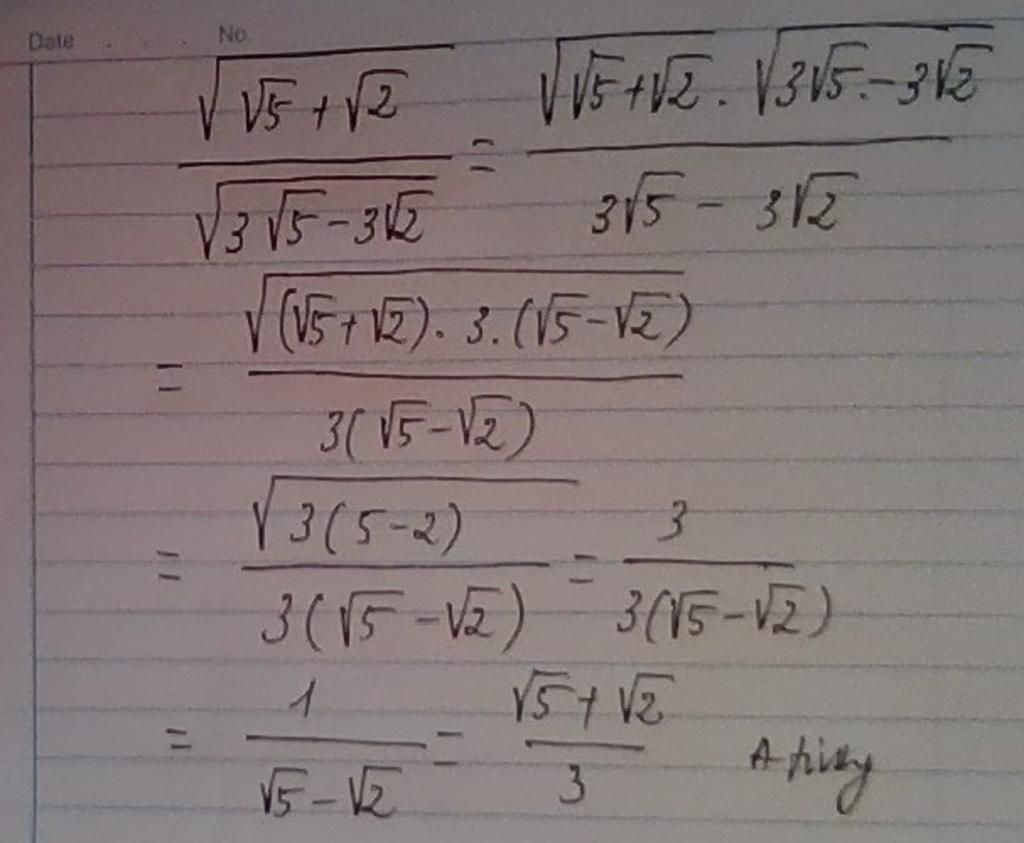 Date . . . No.
\frac{\sqrt{\sqrt{5}+\sqrt{2}}}{\sqrt{3\sqrt{5}-3\sqrt{2}}} = \frac{\sqrt{\sqrt{5}+\sqrt{2}}.\sqrt{3\sqrt{5}.-3\sqrt{2}}}{3\sqrt{5}-3\sqrt{2}}
= \frac{\sqrt{(\sqrt{5}+\sqrt{2}).3.(\sqrt{5}-\sqrt{2})}}{3(\sqrt{5}-\sqrt{2})}
= \frac{\sqrt{3(5-2)}}{3(\sqrt{5}-\sqrt{2})} = \frac{3}{3(\sqrt{5}-\sqrt{2})}
= \frac{1}{\sqrt{5}-\sqrt{2}} = \frac{\sqrt{5}+\sqrt{2}}{3} A